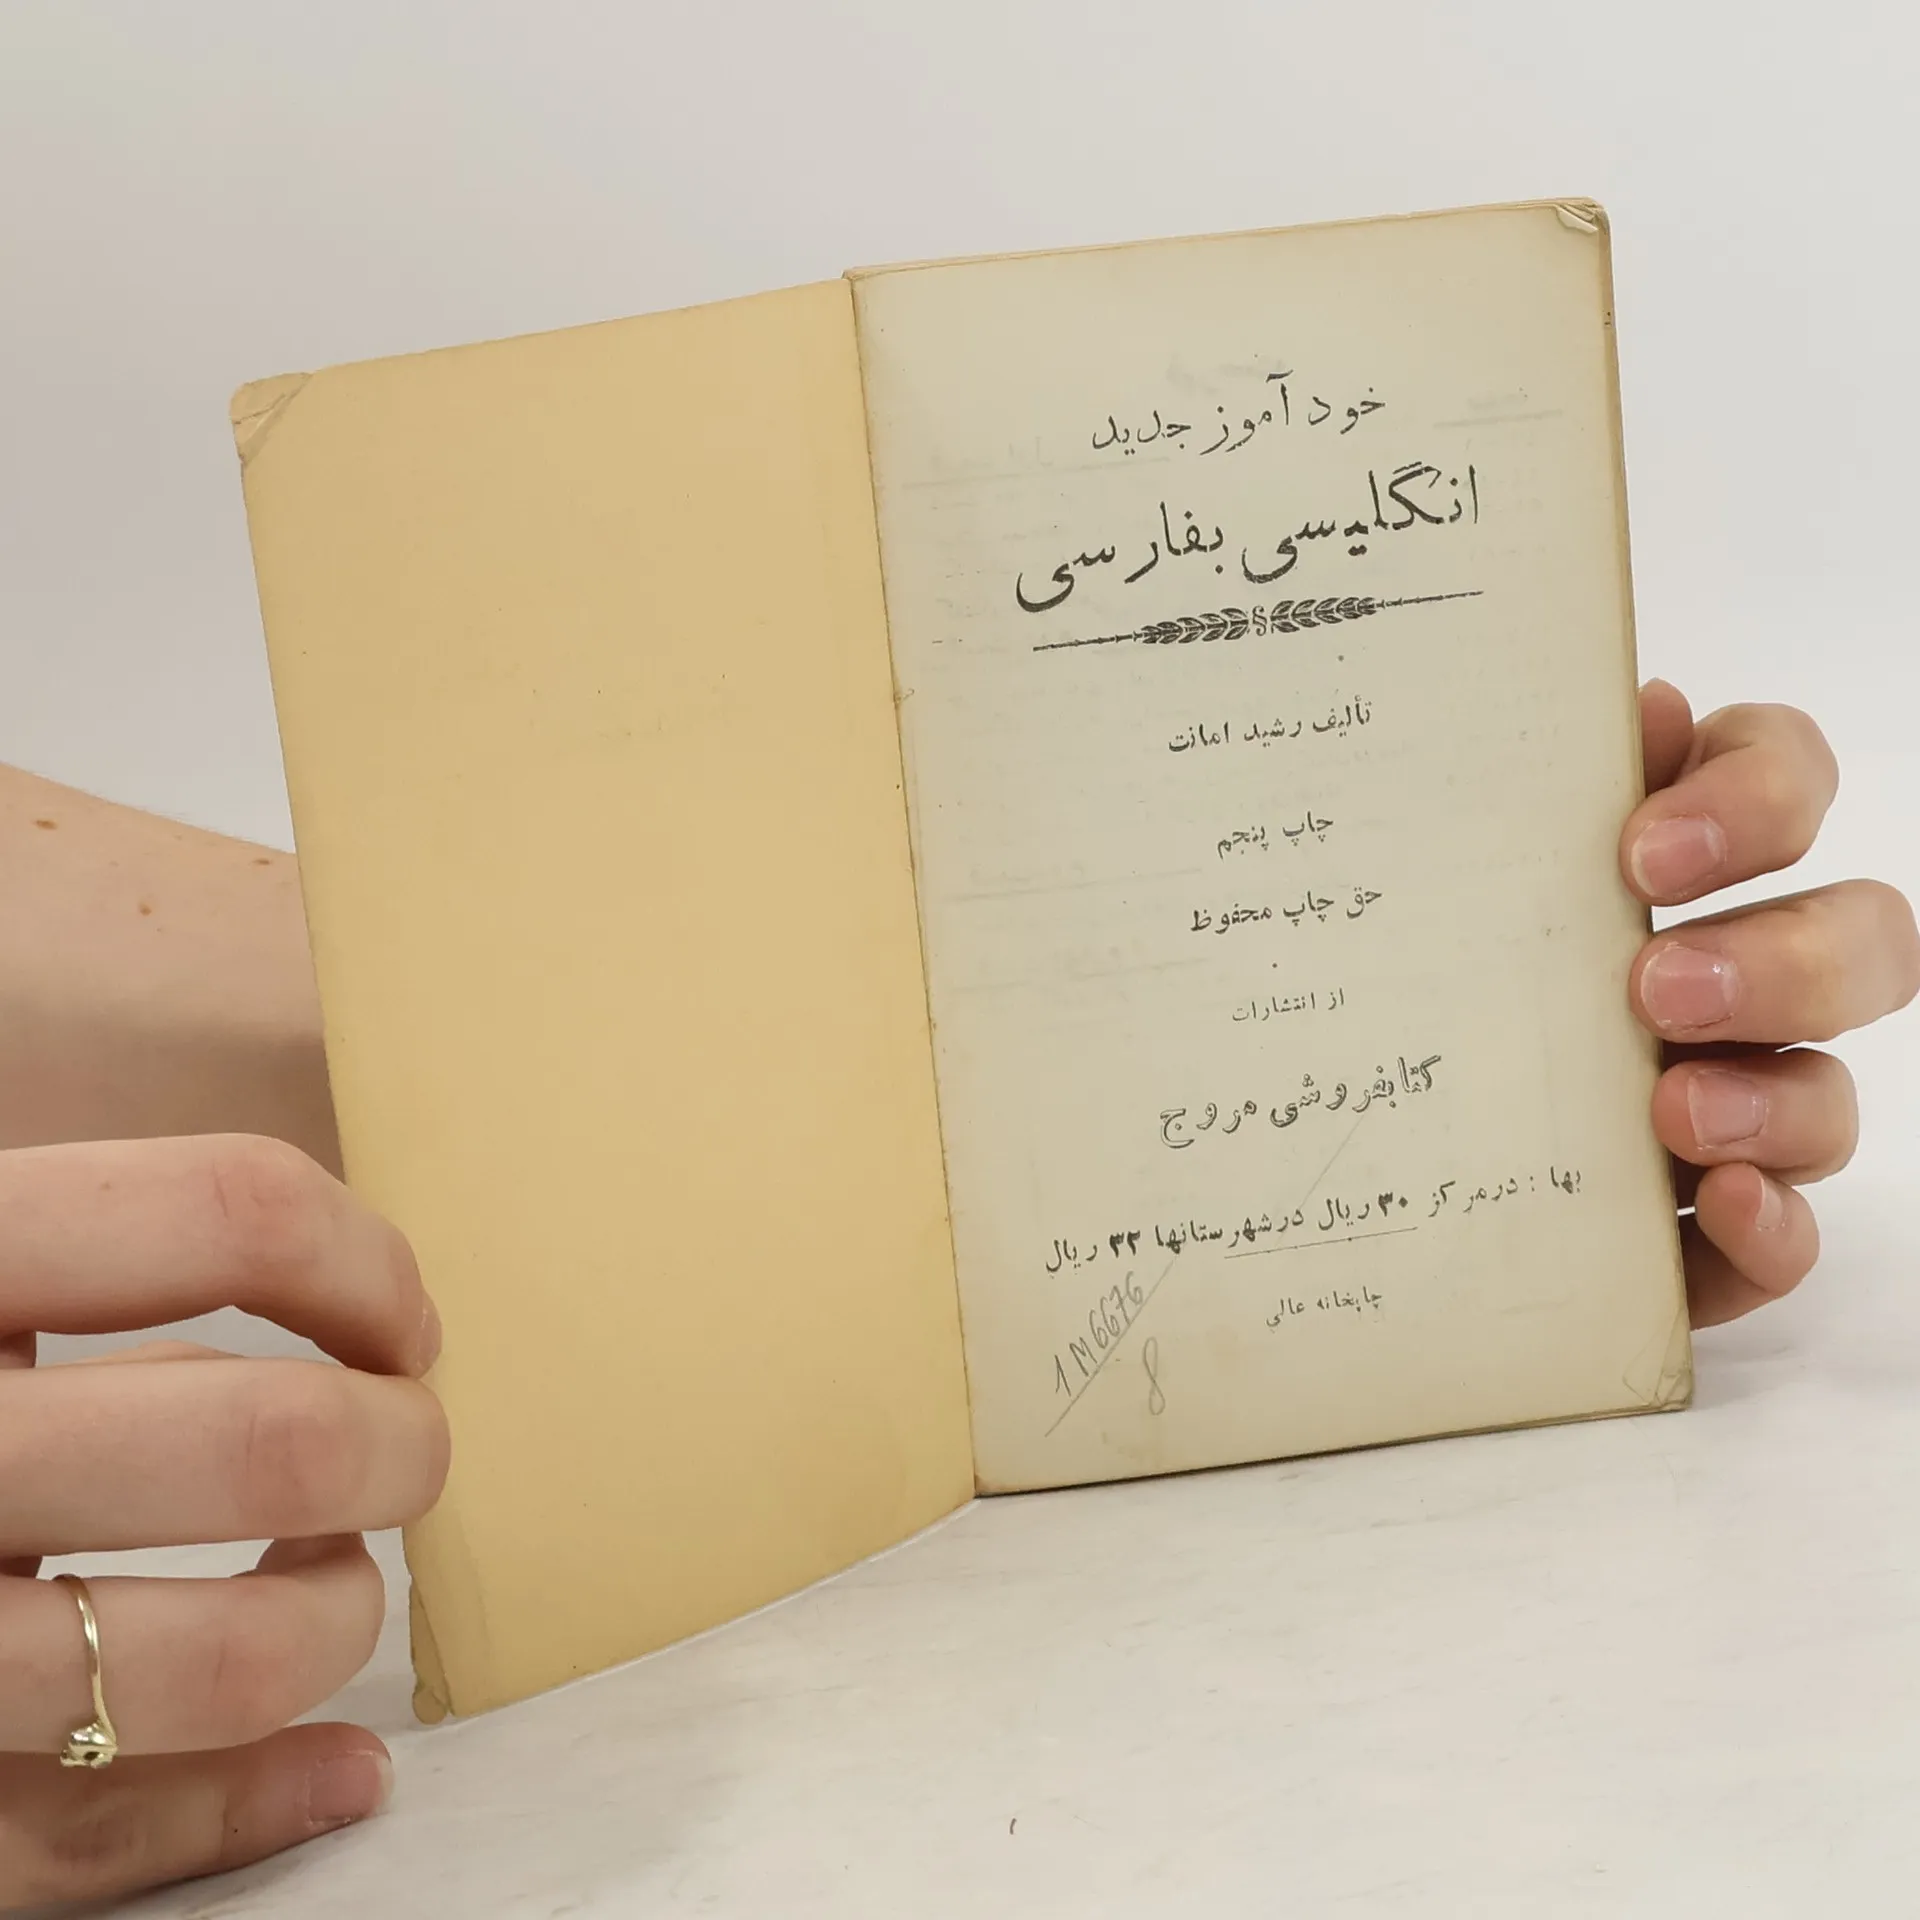 خود آموز جدید
انگلیسی بفارسی
تألیف رشید امانت
چاپ پنجم
حق چاپ محفوظ
از انتشارات
کتابفروشی مروج
بها : درمرکز ۳۰ ریال درشهرستانها ۳۲ ریال
چاپخانه عالی
1M6676
8